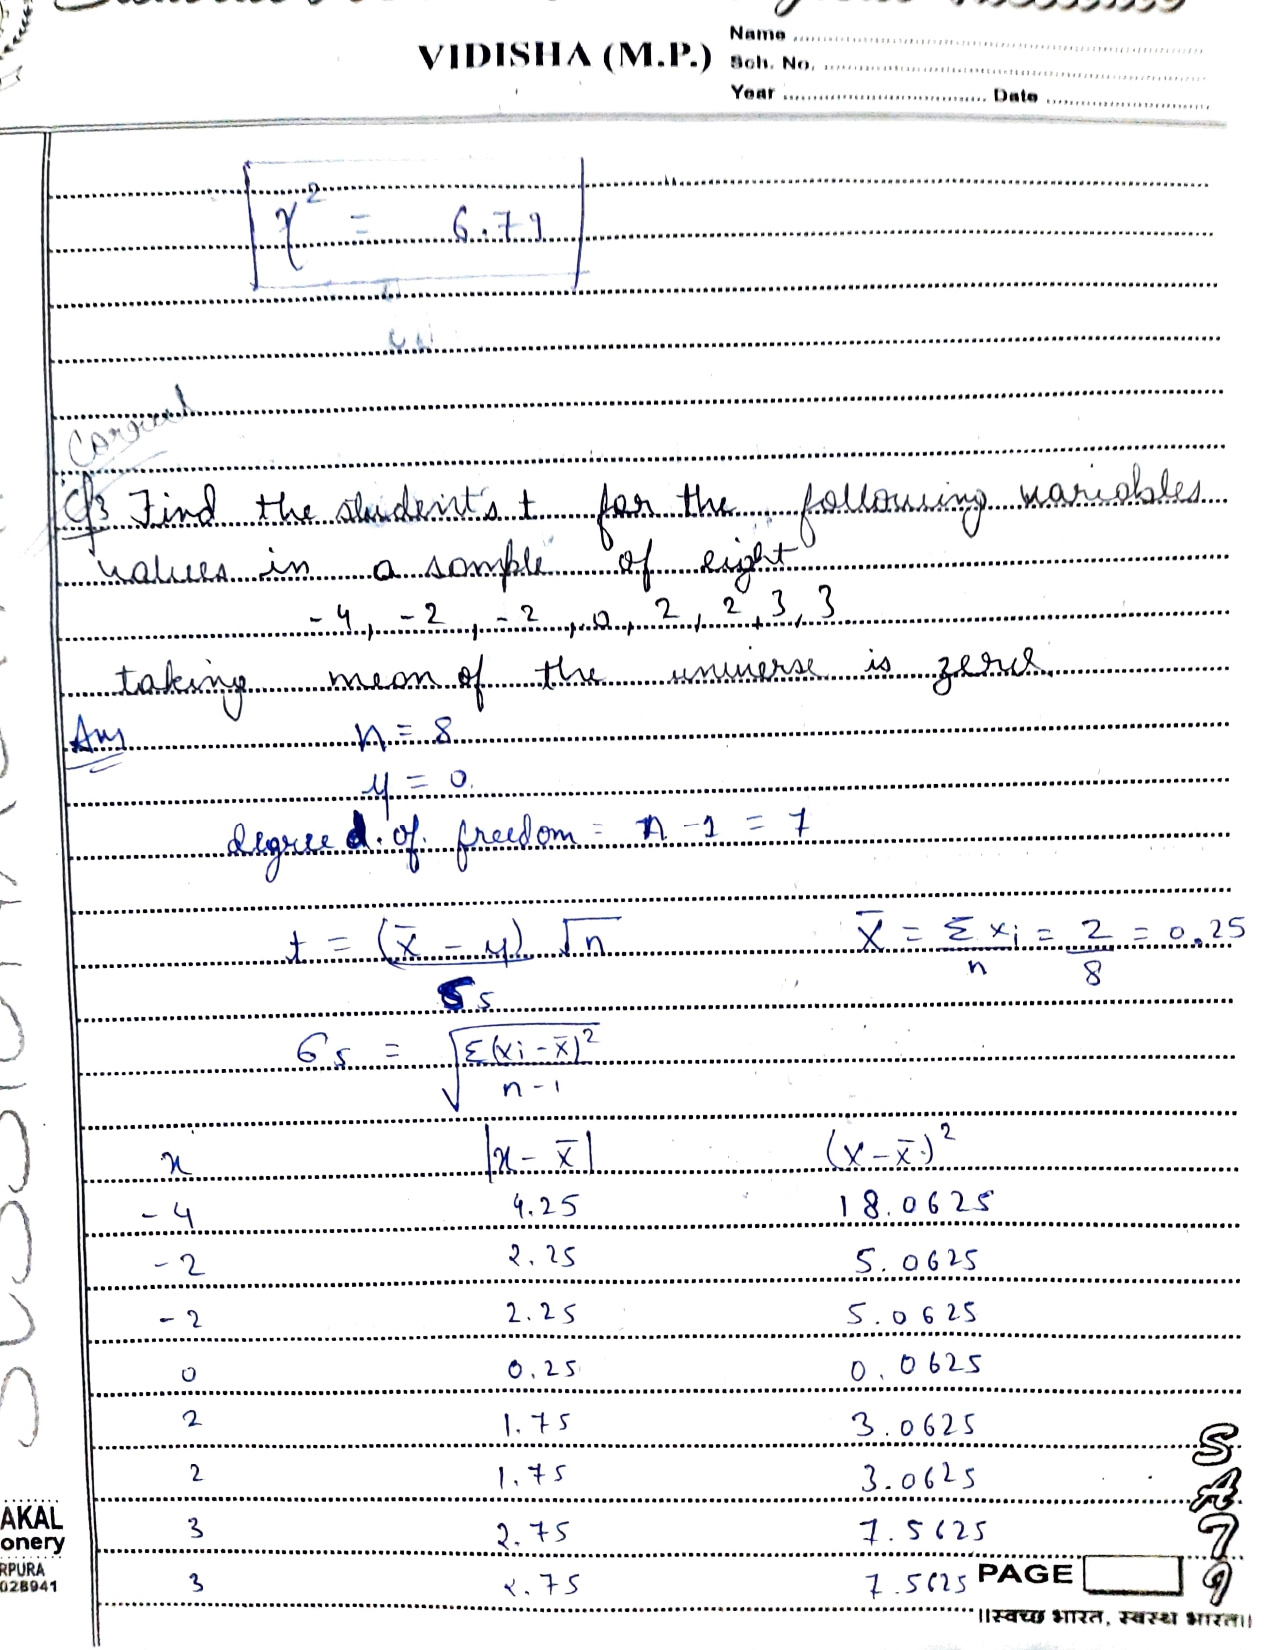 VIDISHA (M.P.)
Name
Sch. No.
Year Date
χ² = 6.79
Q3 Find the student's t for the following variables
values in a sample of eight
-4, -2, -2, 0, 2, 2, 3, 3
taking mean of the universe is zero
Ans n = 8
μ = 0
degree d. of. freedom = n - 1 = 7
t = (x̄ - μ) √n / σs
X̄ = Σxi / n = 2 / 8 = 0.25
σs = √(Σ(xi - x̄)² / n-1)
x |x - x̄| (x - x̄)²
-4 4.25 18.0625
-2 2.25 5.0625
-2 2.25 5.0625
0 0.25 0.0625
2 1.75 3.0625
2 1.75 3.0625
3 2.75 7.5625
3 2.75 7.5625
PAGE
॥स्वच्छ भारत, स्वस्थ भारत॥
SA79
AKAL
onery
RPURA
028941